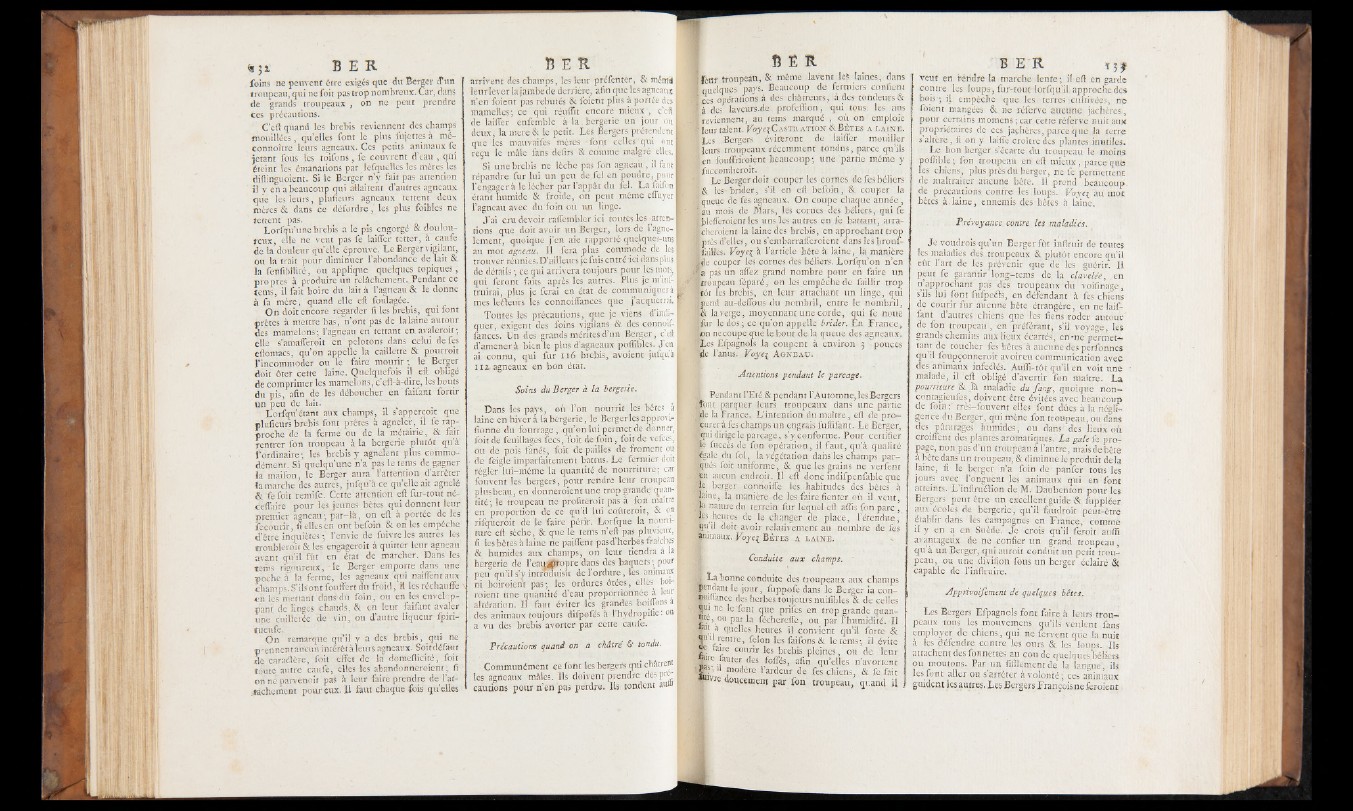 132 B E R
soins ne peuvent être exigés que du Berger d'un
troupeau, qui ne soit pas trop nombreux. Car, dans
de grands troupeaux , on ne peut prendre
ces précautions.
C'est quand les brebis reviennent des champs
mouillées, qu'elles sont le plus sujettes à mé-
connoître leurs agneaux. Ces petits animaux se
jetant sous les toisons, se couvrent d'eau, qui
éteint les émanations par lesquelles les mères les
distinguoient. Si le Berger n'y fait pas attention
il y en a beaucoup qui allaitent d'autres agneaux
que les leurs, plusieurs agneaux tettent deux
mères & dans ce désordre, les plus foibles ne
tettent pas.
Lorsqu'une brebis a le pis engorgé & doulou-
reux, elle ne veut pas se laisser tetter, à cause
de la douleur qu'elle éprouve. Le Berger vigilant,
ou la trait pour diminuer l'abondance de lait &
la sensibilité, ou applique quelques topiques,
propres à produire un relâchement. Pendant ce
tems, il fait boire du lait à l'agneau & le donne
à sa mère, quand elle est soulagée.
On doit encore regarder si les brebis, qui sont
prêtes à mettre bas, n'ont pas de la laine autour
des mamelons; l'agneau en tettant en avaleroit;
elle s'amasseroit en pelotons dans celui de ses
estomacs, qu'on appelle la caillette & pourroit
l'incommoder ou le faire mourir; le Berger
doit ôter cette laine. Quelquefois il est obligé
de comprimer les mamelons, c'est-à-dire, les bouts
du pis, afin de les déboucher en faisant sortir
un peu de lait.
Lorsqu'étant aux champs, il s'apperçoit que
plusieurs brebis sont prêtes à agneler, il se rap-
proche de la ferme ou de la métairie, & fait
rentrer son troupeau à la bergerie plutôt qu'à
l'ordinaire; les brebis y agnelent plus commo-
dément. Si quelqu'une n'a pas le tems de gagner
la maison, le Berger aura l'attention d'arrêter
la marche des autres, jusqu'à ce qu'elle ait agnelé
& se soit remise. Cette attention est sur-tout né-
cessaire pour les jeunes bêtes qui donnent leur
premier agneau; par-là, on est à portée de les
secourir, si elles en ont besoin & on les empêche
d'être inquiètes; l'envie de suivre les autres les
troubleroit & les engageroit à quitter leur agneau
avant qu'il fût en état de marcher. Dans les
tems rigoureux, le Berger emporte dans une
poche à la ferme, les agneaux qui naissent aux
champs. S'ils ont souffert du froid, il les réchauffe
en les mettant dans du foin, ou en les envelop-
pant de linges chauds, & en leur faisant avaler
une cuillerée de vin, ou d'autre liqueur spiri-
tueuse.
On remarque qu'il y a des brebis, qui ne
prennent aucun intérêt à leurs agneaux. Soit défaut
de caractère, soit effet de la domesticité, soit
toute autre cause, elles les abandonneroient; si
on ne parvenoit pas à leur faire prendre de l'at-
tachement pour eux. Il faut chaque fois qu'elles
B E R
arrivent des champs, les leur présenter, & même
leur lever la jambe de derrière, afin que les agneaux
n'en soient pas rebutés & soient plus à portée des
mamelles; ce qui réussit encore mieux, c'est
de laisser ensemble à la bergerie un jour ou
deux, la mere & le petit. Les Bergers prétendent
que les mauvaises mères sont celles qui ont
reçu le mâle sans desirs & comme malgré elles.
Si une brebis ne lèche pas son agneau, il faut
répandre sur lui un peu de sel en poudre, pour
l'engager à le lécher par l'appât du sel. La saison
étant humide & froide, on peut même essuyer
l'agneau avec du foin ou un linge.
J'ai cru devoir rassembler ici toutes les atten-
tions que doit avoir un Berger, lors de l'agne-
lement, quoique j'en aie rapporté quelques-uns
au mot agneau. Il sera plus commode de les
trouver réunies. D'ailleurs je suis entré ici dans plus
de détails; ce qui arrivera toujours pour les mots,
qui seront faits après les autres. Plus je m'ins-
truirai, plus je serai en état de communiquer à
mes lecteurs les connoissances que j'acquerrai.
Toutes les précautions, que je viens d'indi-
quer, exigent des soins vigilans & des connois-
sances. Un des grands mérites d'un Berger, c'est
d'amener à bien le plus d'agneaux possibles. J'en
ai connu, qui sur 116 brebis, avoient jusqu'à
112 agneaux en bon état.
Soins du Berger à la bergerie.
Dans les pays, où l'on nourrit les bêtes à
laine en hiver à la bergerie, le Berger les approvi-
sionne du fourrage, qu'on lui permet de donner,
soit de feuillages secs, soit de foin, soit de vesces,
ou de pois fanés, soit de pailles de froment ou
de seigle imparfaitement battus. Le fermier doit
régler lui-même la quantité de nourriture; car
souvent les bergers, pour rendre leur troupeau
plus beau, en donneroient une trop grande quan-
tité; le troupeau ne profiteroit pas à son maître
en proportion de ce qu'il lui coûteroit, & on
risqueroit de le faire périr. Lorsque la nourri-
ture est sèche, & que le tems n'est pas pluvieux,
si les bêtes à laine ne paissent pas d'herbes fraîches
& humides aux champs, on leur tiendra à la
bergerie de l'eau propre dans des baquets; pour
peu qu'il s'y introduisît de l'ordure, les animaux
ni boiroient pas; les ordures ôtées, elles boi-
roient une quantité d'eau proportionnée à leur
altération. Il faut éviter les grandes boissons à
des animaux toujours disposés à l'hydropisie: on
a vu des brebis avorter par cette cause.
Précautions quand on a châtré & tondu.
Communément ce sont les bergers qui châtrent
les agneaux mâles. Ils doivent prendre des pré-
cautions pour n'en pas perdre. Ils tondent aussi
B E R
leur troupeau, & même lavent les laines, dans
quelques pays. Beaucoup de fermiers confient
ces opérations à des châtreurs, à des tondeurs &
à des laveurs de profession, qui tous les ans
reviennent, au tems marqué, où on emploie
leur talent. Voyez Castration & Bêtes a laine.
Les Bergers éviteront de laisser mouiller
leurs troupeaux récemment tondus, parce qu'ils
en souffriroient beaucoup; une partie même y
succomberoit.
Le Berger doit couper les cornes de ses béliers
& les brider, s'il en est besoin, & couper la
queue de ses agneaux. On coupe chaque année,
au mois de Mars, les cornes des béliers, qui se
blesseroient les uns les autres en se battant, arra-
cheroient la laine des brebis, en approchant trop
près d'elles, ou s'embarrasseroient dans les brous-
sailles. Voyez à l'article bête à laine, la manière
de couper les cornes des béliers. Lorsqu'on n'en
a pas un assez grand nombre pour en faire un
troupeau séparé, on les empêche de saillir trop
tôt les brebis, en leur attachant un linge, qui
pend au-dessous du nombril, entre le nombril,
& la verge, moyennant une corde, qui se noue
sur le dos; ce qu'on appelle brider. En France,
on ne coupe que le bout de la queue des agneaux.
Les Espagnols la coupent à environ 3 pouces
de l'anus. Voyez Agneau.
Attentions pendant le parcage.
Pendant l'Eté & pendant l'Automne, les Bergers
font parquer leurs troupeaux dans une partie
de la France. L'intention du maître, est de pro-
curer à ses champs un engrais suffisant. Le Berger,
qui dirige le parcage, s'y conforme. Pour certifier
le succès de son opération, il faut, qu'à qualité
égale du sol, la végétation dans les champs par-
qués soit uniforme, & que les grains ne versent
en aucun endroit. Il est donc indispensable que
le berger connoisse les habitudes des bêtes à
laine, la manière de les faire fienter où il veut,
la nature du terrein sur lequel est assis son parc,
les heures de le changer de place, l'étendue,
qu'il doit avoir relativement au nombre de ses
animaux. Voyez Bêtes a laine.
Conduite aux champs.
La bonne conduite des troupeaux aux champs
pendant le jour, suppose dans le Berger la con-
noissance des herbes toujours nuisibles & de celles
qui ne le sont que prises en trop grande quan-
tité, ou par la sécheresse, ou par l'humidité. Il
sait à quelles heures il convient qu'il sorte &
qu'il rentre, selon les saisons & le tems; il évite
de faire courir les brebis pleines, ou de leur
faire sauter des fossés, afin qu'elles n'avortent
pas; il modère l'ardeur de ses chiens, & se fait
suivre doucement par son troupeau, quand il
B E R 133
veut en rendre la marche lente; il est en garde
contre les loups, sur-tout lorsqu'il approche des
bois; il empêche que les terres cultivées, ne
soient mangées & ne réserve aucune jachères,
pour certains momens; car cette réserve nuit aux
propriétaires de ces jachères, parce que la terre
s'altère, si on y laisse croître des plantes inutiles.
Le bon berger s'écarte du troupeau le moins
possible; son troupeau en est mieux, parce que
les chiens, plus près du berger, ne se permettent
de maltraiter aucune bête. Il prend beaucoup
de précautions contre les loups. Voyez au mot
bêtes à laine, ennemis des bêtes à laine.
Prévoyance contre les maladies.
Je voudrois qu'un Berger fût instruit de toutes
les maladies des troupeaux & plutôt encore qu'il
eût l'art de les prévenir que de les guérir. Il
peut se garantir long-tems de la clavelée, en
n'approchant pas des troupeaux du voisinage,
s'ils lui sont suspects, en défendant à ses chiens
de courir sur aucune bête étrangère, en ne lais-
sant d'autres chiens que les siens roder autour
de son troupeau, en préférant, s'il voyage, les
grands chemins aux lieux écartés, en ne permet-
tant de toucher ses bêtes à aucune des personnes,
qu'il soupçonneroit avoir eu communication avec
des animaux infectés. Aussi-tôt qu'il en voit une
malade, il est obligé d'avertir son maître. La
pourriture & la maladie du sang, quoique non-
contagieuses, doivent être évitées avec beaucoup
de soin: très-souvent elles sont dûes à la négli-
gence du Berger, qui mène son troupeau, ou dans
des pâturages humides, ou dans des lieux où
croissent des plantes aromatiques. La gale se pro-
page, non pas d'un troupeau à l'autre, mais de bête
à bête dans un troupeau, & diminue le produit de la
laine, si le berger n'a soin de panser tous les
jours avec l'onguent les animaux qui en sont
atteints. L'instruction de M. Daubenton pour les
Bergers peut être un excellent guide & suppléer
aux écoles de bergerie, qu'il faudroit peut-être
établir dans les campagnes en France, comme
il y en a en Suède. Je crois qu'il seroit aussi
avantageux de ne confier un grand troupeau,
qu'à un Berger, qui auroit conduit un petit trou-
peau, ou une division sous un berger éclairé &
capable de l'instruire.
Apprivoisement de quelques bêtes.
Les Bergers Espagnols font faire à leurs trou-
peaux tous les mouvemens qu'ils veulent sans
employer de chiens, qui ne servent que la nuit
à les défendre contre les ours & les loups. Ils
attachent des sonnettes au cou de quelques béliers
ou moutons. Par un sifflement de la langue, ils
les font aller ou s'arrêter à volonté; ces animaux
guident les autres. Les Bergers François ne feroient